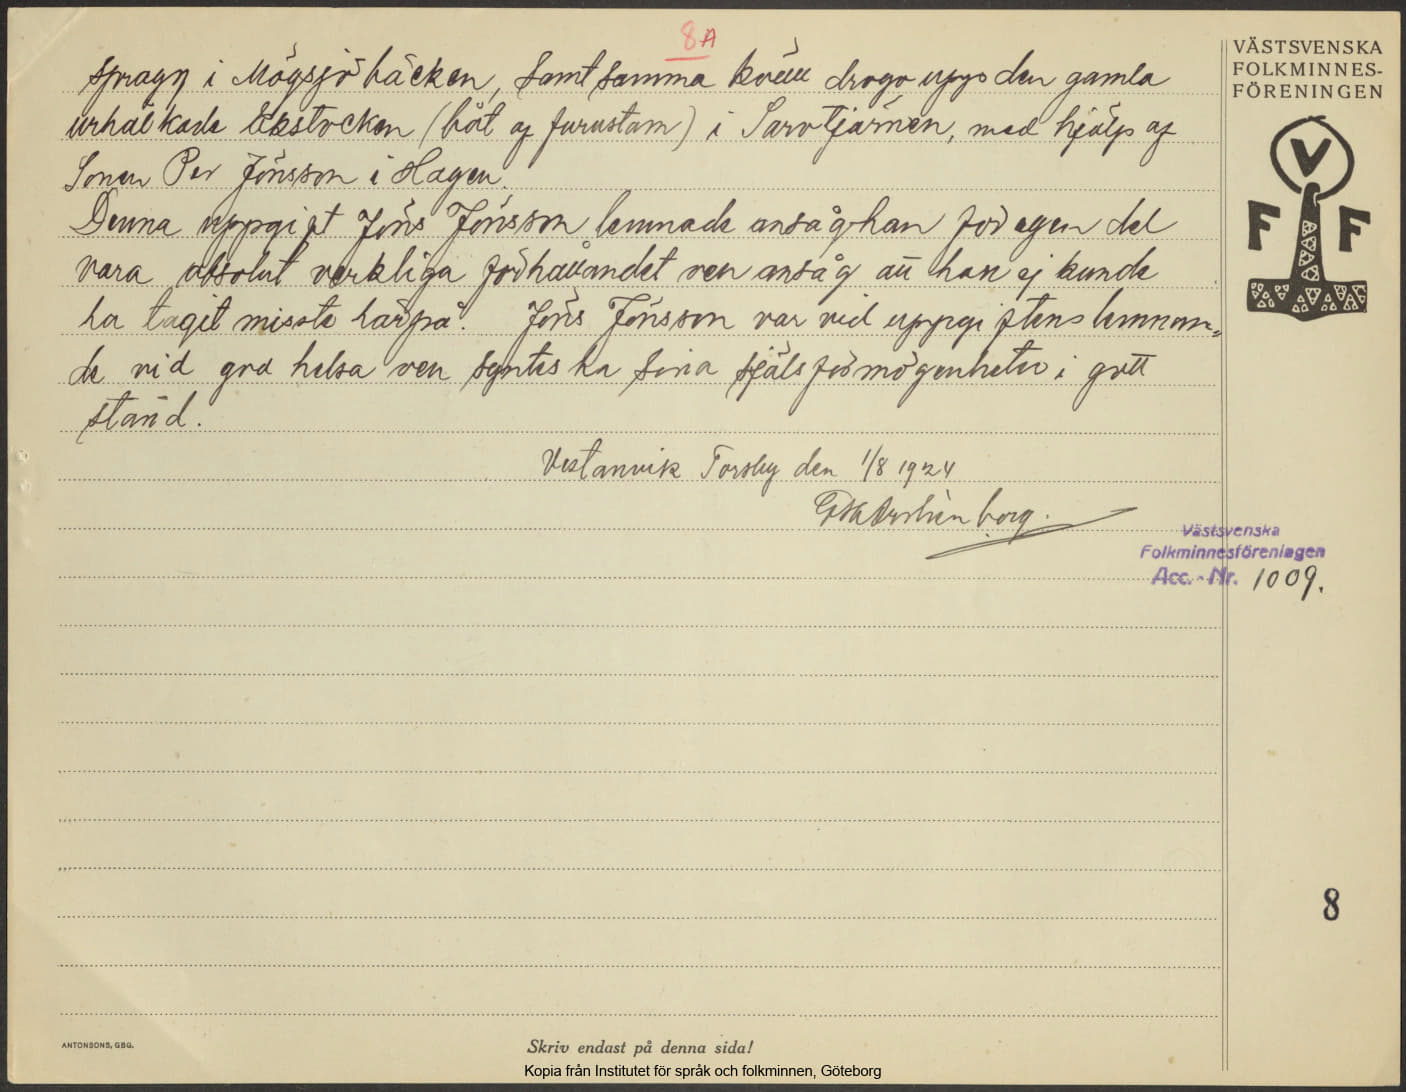 8 A
VÄSTSVENSKA
FOLKMINNES-
FÖRENINGEN
i Mögsjöbäcken, samt samma kväll drogo upp den gamla
urhålkade Ekstocken (båt af furustam) i Sarvtjärnen, med hjälp af
Sonen Per Jönsson i Hagen.
Denna uppgift Jöns Jönsson lemnade ansåg han för egen del
vara absolut verkliga förhållandet och ansåg att han ej kunde
ha tagit misste härpå. Jöns Jönsson var vid uppgiftens lemnan-
de vid god helsa och syntes ha sina själsförmögenheter i gott
stånd.
Vestanvik Torsby den 1/8 1924
V
F F
Västsvenska
Folkminnesföreningen
Acc. - Nr. 1009.
8
ANTONSONS, GBG.
Skriv endast på denna sida!
Kopia från Institutet för språk och folkminnen, Göteborg